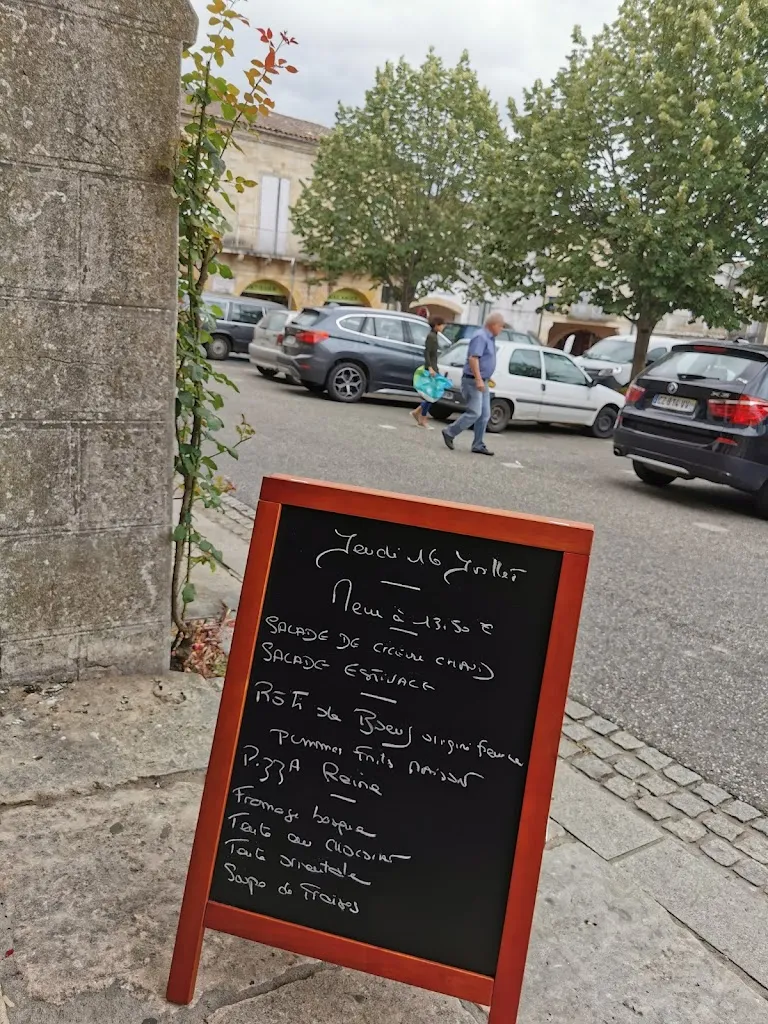 Jeudi 16 Juillet
Menu à 13.50 €
SALADE DE CHÈVRE CHAUD
SALADE ESTIVALE
Rôti de Boeuf origine france
Pommes frites MAISON
PIZZA Reine
Fromage basque
Tarte au CHOCOLAT
Tarte orientale
Soupe de Fraises